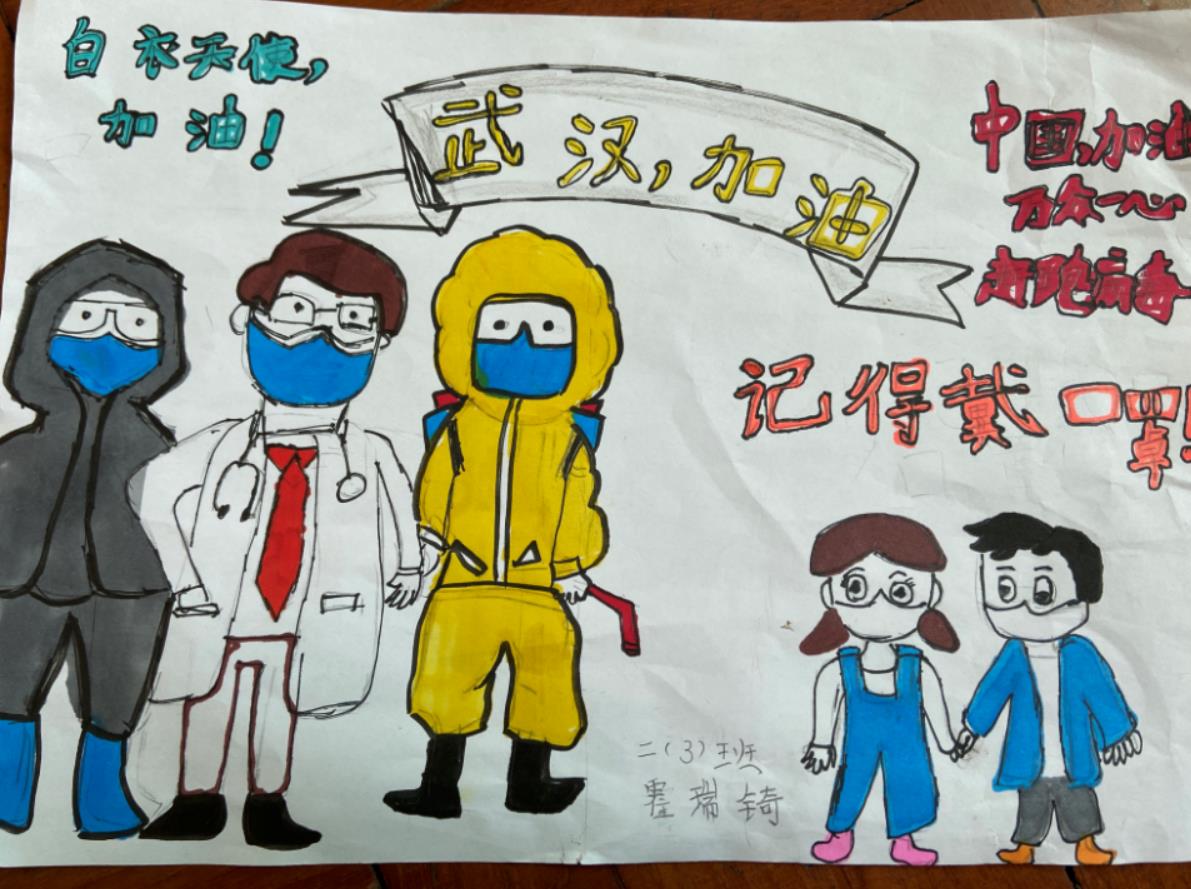 白衣天使,
加油!
武汉,加油
中国,加油
万众一心
赶跑病毒
记得戴口罩!
二(3)班
霍瑞锜